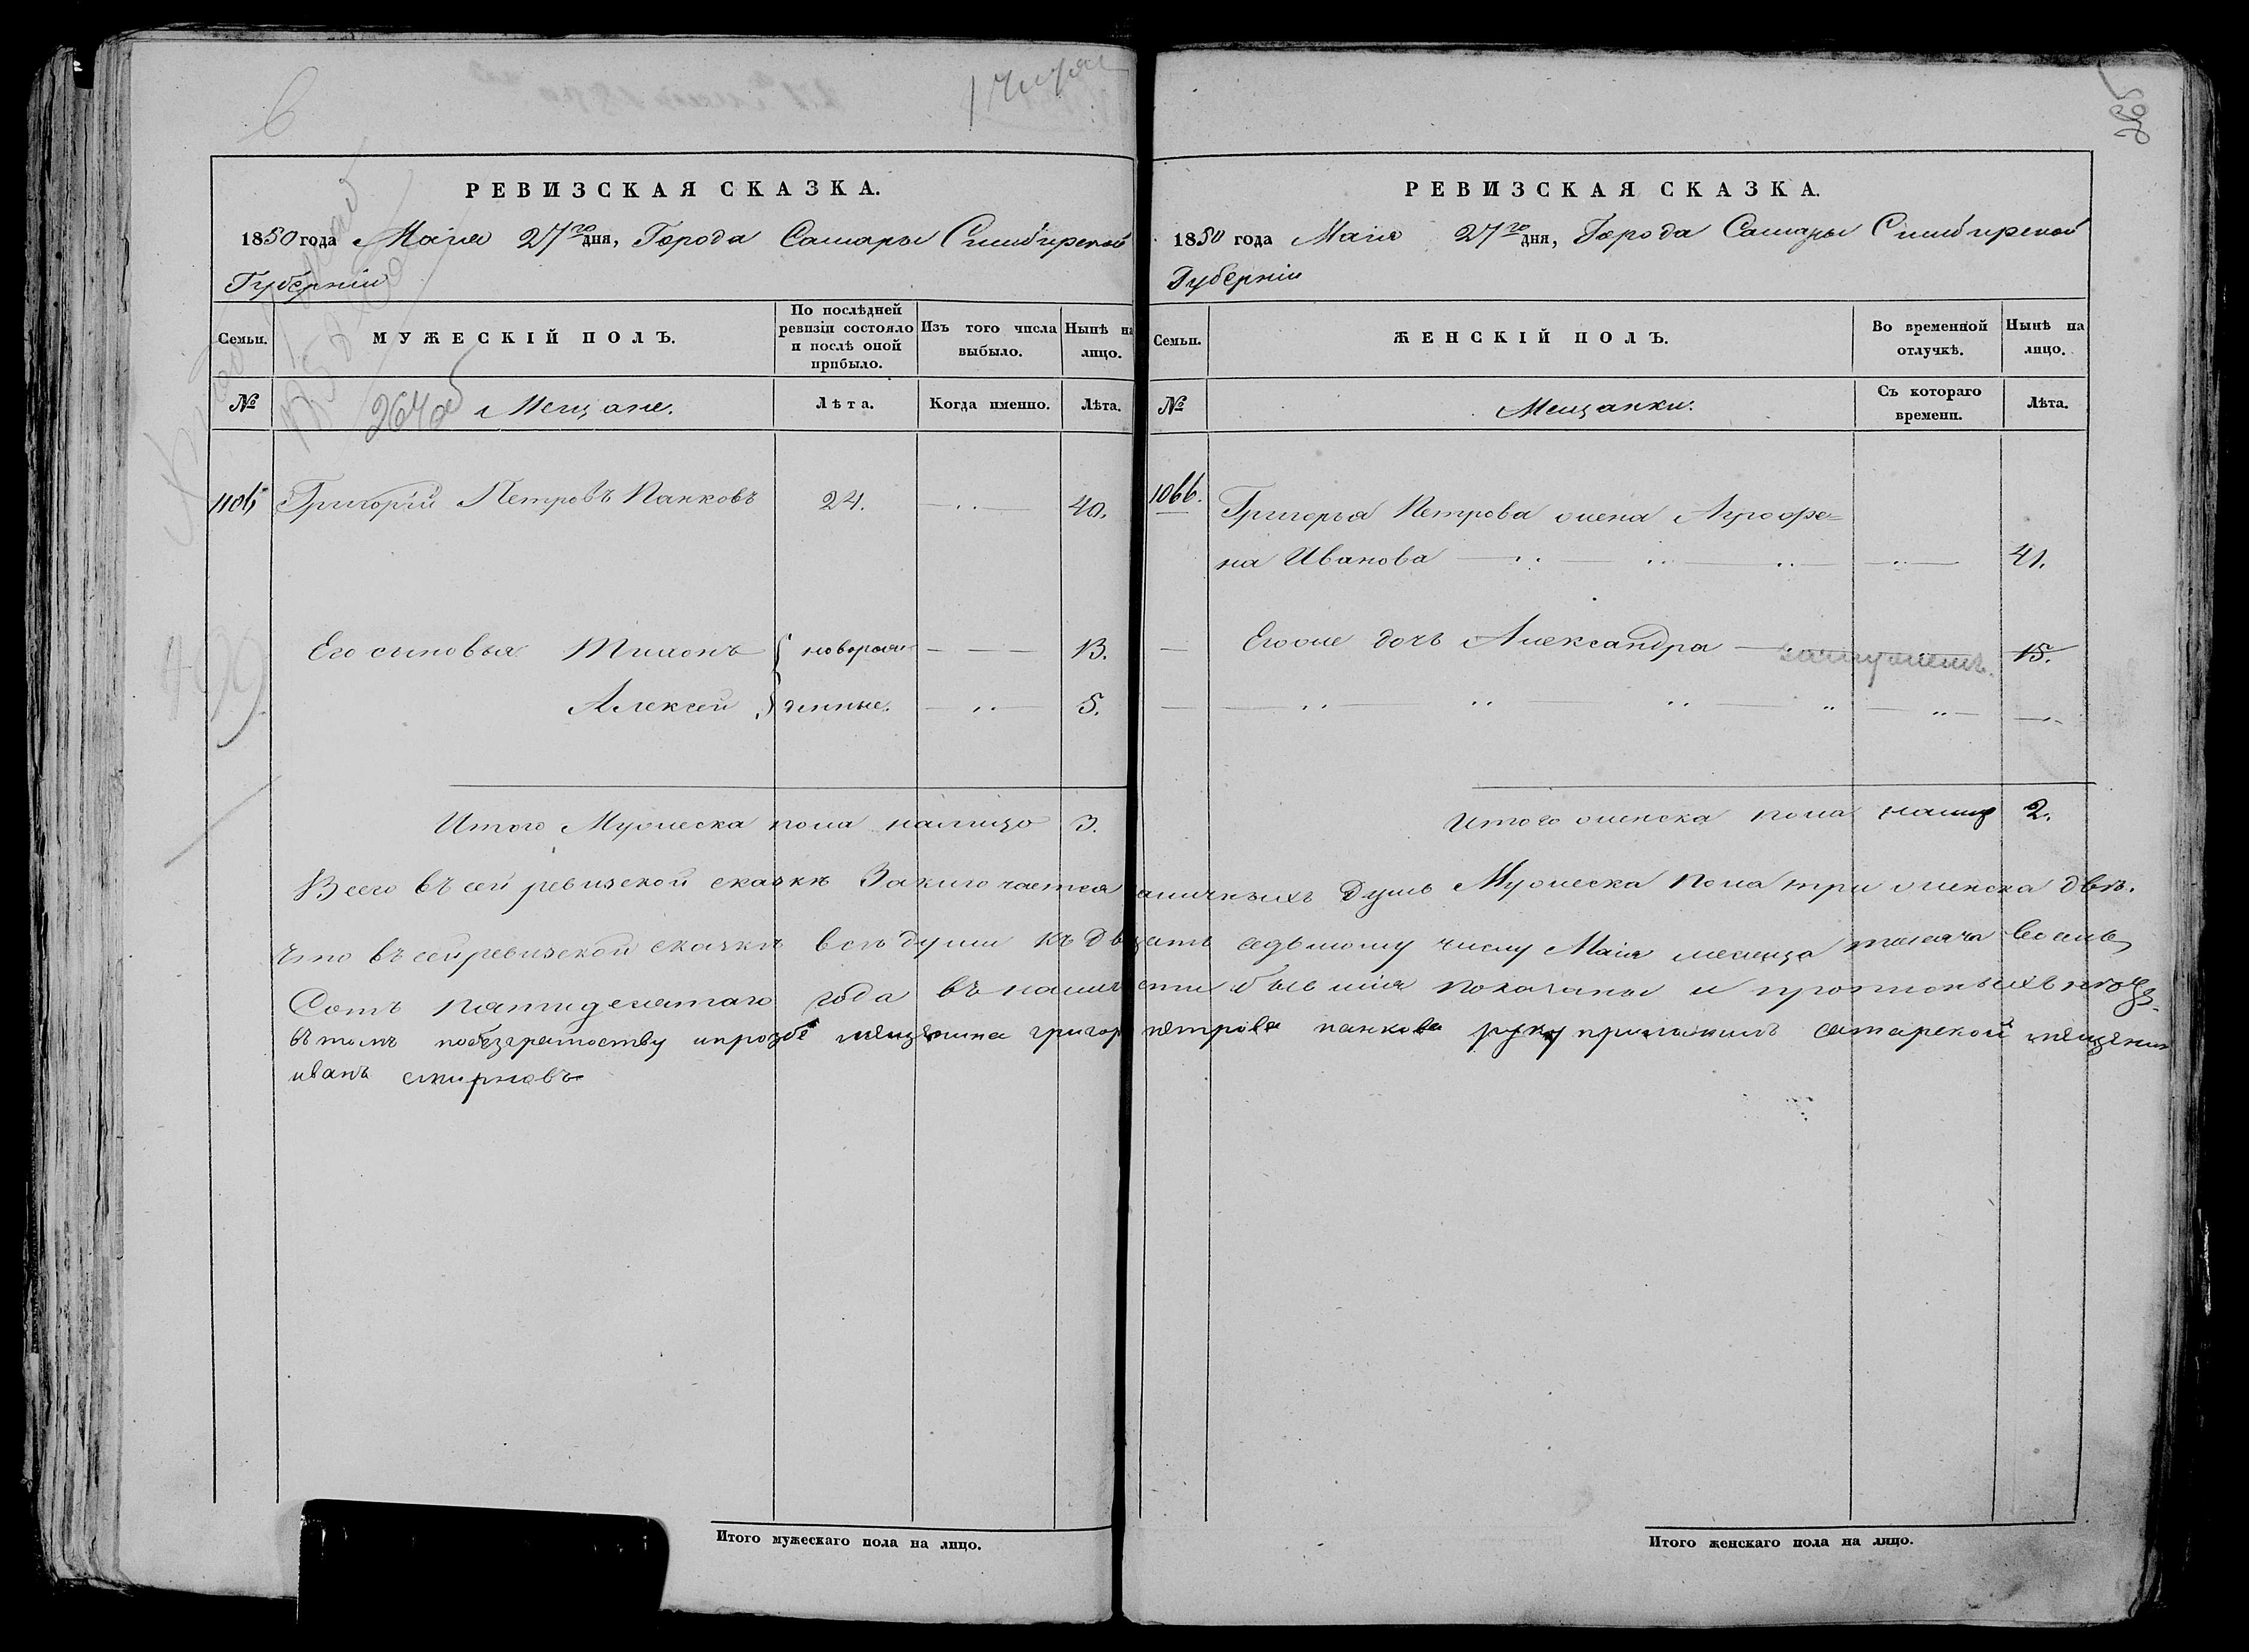 6
265
РЕВИЗСКАЯ СКАЗКА.
1850 года Маія 27го дня, Города Самары Симбирской
Губерніи
Семьи.
МУЖЕСКІЙ ПОЛЪ.
По послѣдней ревизіи состояло и послѣ оной прибыло.
Изъ того числа выбыло.
Нынѣ на лицо.
№
264 об
Мещане.
Лѣта.
Когда именно.
Лѣта.
Григорій Петровъ Панковъ 24. 40.
Его сыновья Тихонъ новорож 13.
Алексей денные. 5.
Итого Мужеска пола налицо 3.
РЕВИЗСКАЯ СКАЗКА.
1850 года Маія 27го дня, Города Самары Симбирской
Губерніи
Семьи.
ЖЕНСКІЙ ПОЛЪ.
Во временной отлучкѣ.
Нынѣ на лицо.
№
Мещанки.
Съ котораго времени.
Лѣта.
1066.
Григорья Петрова жена Аграфе=
на Иванова 41.
Егоже дочь Александра замужемъ. 15.
Итого женска пола налиц 2.
Всего въ сей ревизской сказкѣ Заключается аличныхъ Душъ Мужеска Пола три женска двѣ.
Что въ сей ревизской сказкѣ всѣ души къ Двацать седьмому числу Маія месяца тысяча восемь
Сотъ пятидесятаго года въ налич сти бывшія показаны и
въ томъ побезграмоству ипрозбе мещанина григор петрова панкова руку приложилъ самарской мещенин
иванъ смирновъ
Итого мужескаго пола на лицо.
Итого женскаго пола на лицо.